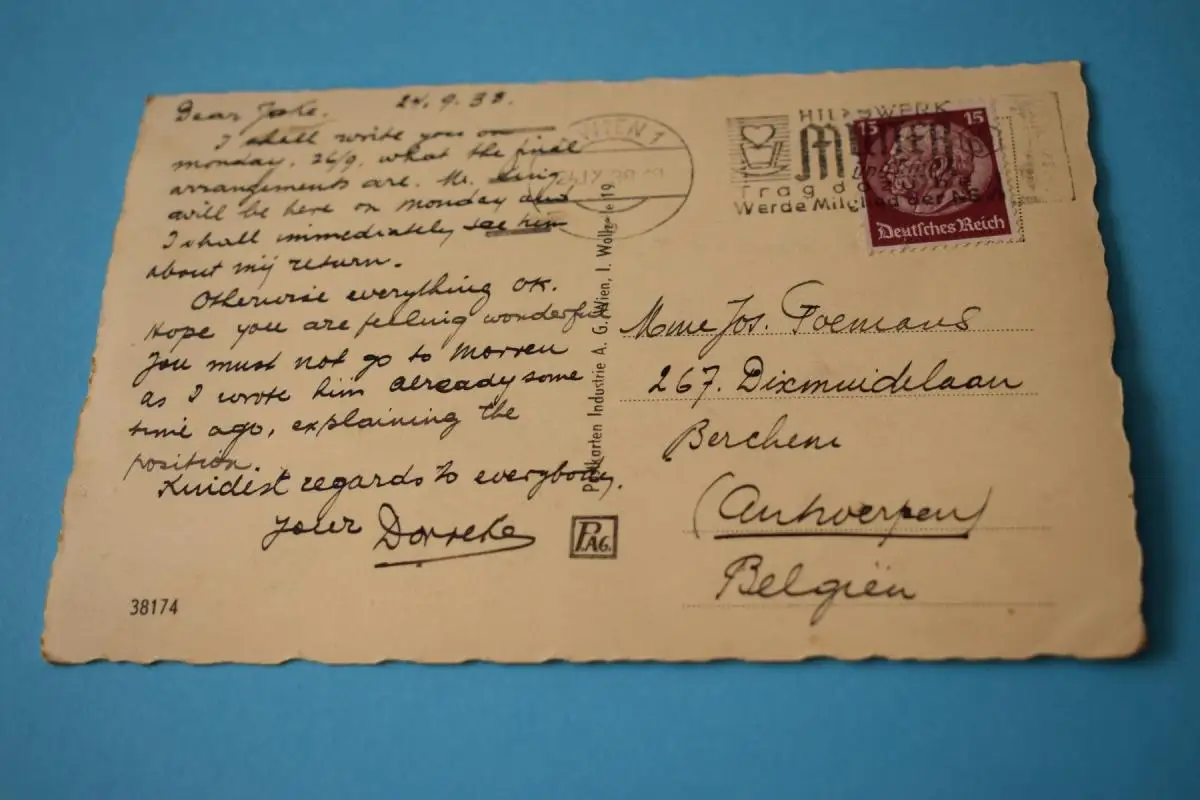 Dear Joke. 24.9.38.
I shall write you on
monday, 26/9, what the final
arrangements are. Mr.
will be here on Monday and
I shall immediately see him
about my return.
Otherwise everything OK.
Hope you are feeling wonderful.
You must not go to Morren
as I wrote him already some
time ago, explaining the
position.
Kindest regards to everybody.
Your Dorreke
38174
WIEN 1
Postkarten Industrie A. G. Wien, I. 19
P.AG.
HILFSWERK
MUTTER
und Kind
Trag
Werde Mitglied der NSV
15 15
Deutsches Reich
Mme Jos. Poemans
267. Dixmuidelaan
Berchem
(Antwerpen)
Belgiën